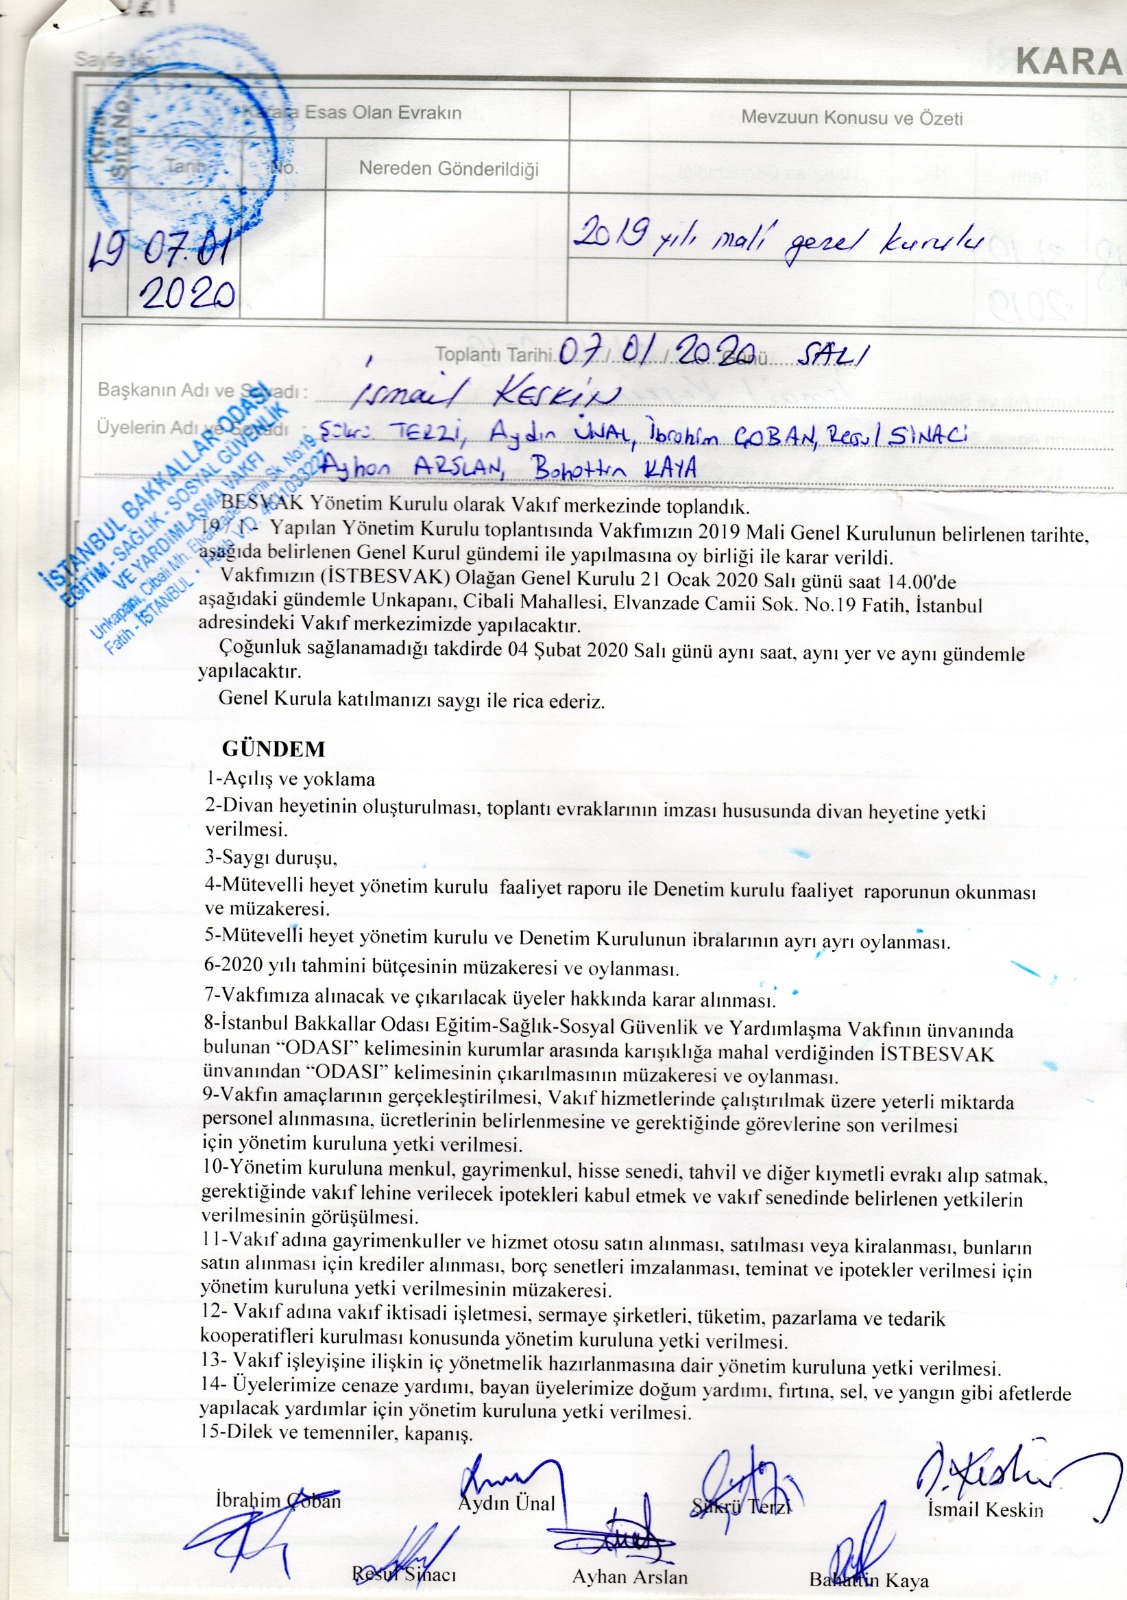 Sayfa No
KARA
Karar Sıra No.
Karara Esas Olan Evrakın
Mevzuun Konusu ve Özeti
Tarih
No.
Nereden Gönderildiği
19 07.01
2020
2019 yılı mali genel kurulu
Toplantı Tarihi 07/01/2020 Günü SALI
Başkanın Adı ve Soyadı : İsmail KESKİN
Üyelerin Adı ve Soyadı : Şükrü TERZİ, Aydın ÜNAL, İbrahim ÇOBAN, Resul SİNACİ
Ayhan ARSLAN, Bahattin KAYA
İSTANBUL BAKKALLAR ODASI
EĞİTİM - SAĞLIK - SOSYAL GÜVENLİK
VE YARDIMLAŞMA VAKFI
Unkapanı, Cibali Mh. Elvanzade Camii Sk. No:19
Fatih - İSTANBUL
BESVAK Yönetim Kurulu olarak Vakıf merkezinde toplandık.
19 / 1 - Yapılan Yönetim Kurulu toplantısında Vakfımızın 2019 Mali Genel Kurulunun belirlenen tarihte,
aşağıda belirlenen Genel Kurul gündemi ile yapılmasına oy birliği ile karar verildi.
Vakfımızın (İSTBESVAK) Olağan Genel Kurulu 21 Ocak 2020 Salı günü saat 14.00'de
aşağıdaki gündemle Unkapanı, Cibali Mahallesi, Elvanzade Camii Sok. No.19 Fatih, İstanbul
adresindeki Vakıf merkezimizde yapılacaktır.
Çoğunluk sağlanamadığı takdirde 04 Şubat 2020 Salı günü aynı saat, aynı yer ve aynı gündemle
yapılacaktır.
Genel Kurula katılmanızı saygı ile rica ederiz.
GÜNDEM
1-Açılış ve yoklama
2-Divan heyetinin oluşturulması, toplantı evraklarının imzası hususunda divan heyetine yetki
verilmesi.
3-Saygı duruşu,
4-Mütevelli heyet yönetim kurulu faaliyet raporu ile Denetim kurulu faaliyet raporunun okunması
ve müzakeresi.
5-Mütevelli heyet yönetim kurulu ve Denetim Kurulunun ibralarının ayrı ayrı oylanması.
6-2020 yılı tahmini bütçesinin müzakeresi ve oylanması.
7-Vakfımıza alınacak ve çıkarılacak üyeler hakkında karar alınması.
8-İstanbul Bakkallar Odası Eğitim-Sağlık-Sosyal Güvenlik ve Yardımlaşma Vakfının ünvanında
bulunan “ODASI” kelimesinin kurumlar arasında karışıklığa mahal verdiğinden İSTBESVAK
ünvanından “ODASI” kelimesinin çıkarılmasının müzakeresi ve oylanması.
9-Vakfın amaçlarının gerçekleştirilmesi, Vakıf hizmetlerinde çalıştırılmak üzere yeterli miktarda
personel alınmasına, ücretlerinin belirlenmesine ve gerektiğinde görevlerine son verilmesi
için yönetim kuruluna yetki verilmesi.
10-Yönetim kuruluna menkul, gayrimenkul, hisse senedi, tahvil ve diğer kıymetli evrakı alıp satmak,
gerektiğinde vakıf lehine verilecek ipotekleri kabul etmek ve vakıf senedinde belirlenen yetkilerin
verilmesinin görüşülmesi.
11-Vakıf adına gayrimenkuller ve hizmet otosu satın alınması, satılması veya kiralanması, bunların
satın alınması için krediler alınması, borç senetleri imzalanması, teminat ve ipotekler verilmesi için
yönetim kuruluna yetki verilmesinin müzakeresi.
12- Vakıf adına vakıf iktisadi işletmesi, sermaye şirketleri, tüketim, pazarlama ve tedarik
kooperatifleri kurulması konusunda yönetim kuruluna yetki verilmesi.
13- Vakıf işleyişine ilişkin iç yönetmelik hazırlanmasına dair yönetim kuruluna yetki verilmesi.
14- Üyelerimize cenaze yardımı, bayan üyelerimize doğum yardımı, fırtına, sel, ve yangın gibi afetlerde
yapılacak yardımlar için yönetim kuruluna yetki verilmesi.
15-Dilek ve temenniler, kapanış.
İbrahim Çoban Aydın Ünal Şükrü Terzi İsmail Keskin
Resul Sinacı Ayhan Arslan Bahattin Kaya